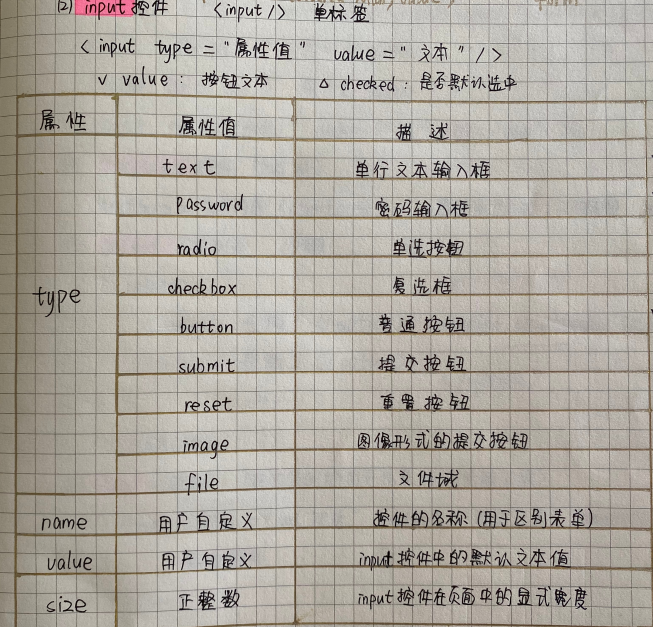 (2) input控件 <input /> 单标签
<input type="属性值" value="文本" />
∨ value: 按钮文本 △ checked: 是否默认选中
属性 属性值 描述
text 单行文本输入框
password 密码输入框
radio 单选按钮
type checkbox 复选框
button 普通按钮
submit 提交按钮
reset 重置按钮
image 图像形式的提交按钮
file 文件域
name 用户自定义 控件的名称(用于区别表单)
value 用户自定义 input控件中的默认文本值
size 正整数 input控件在页面中的显式宽度